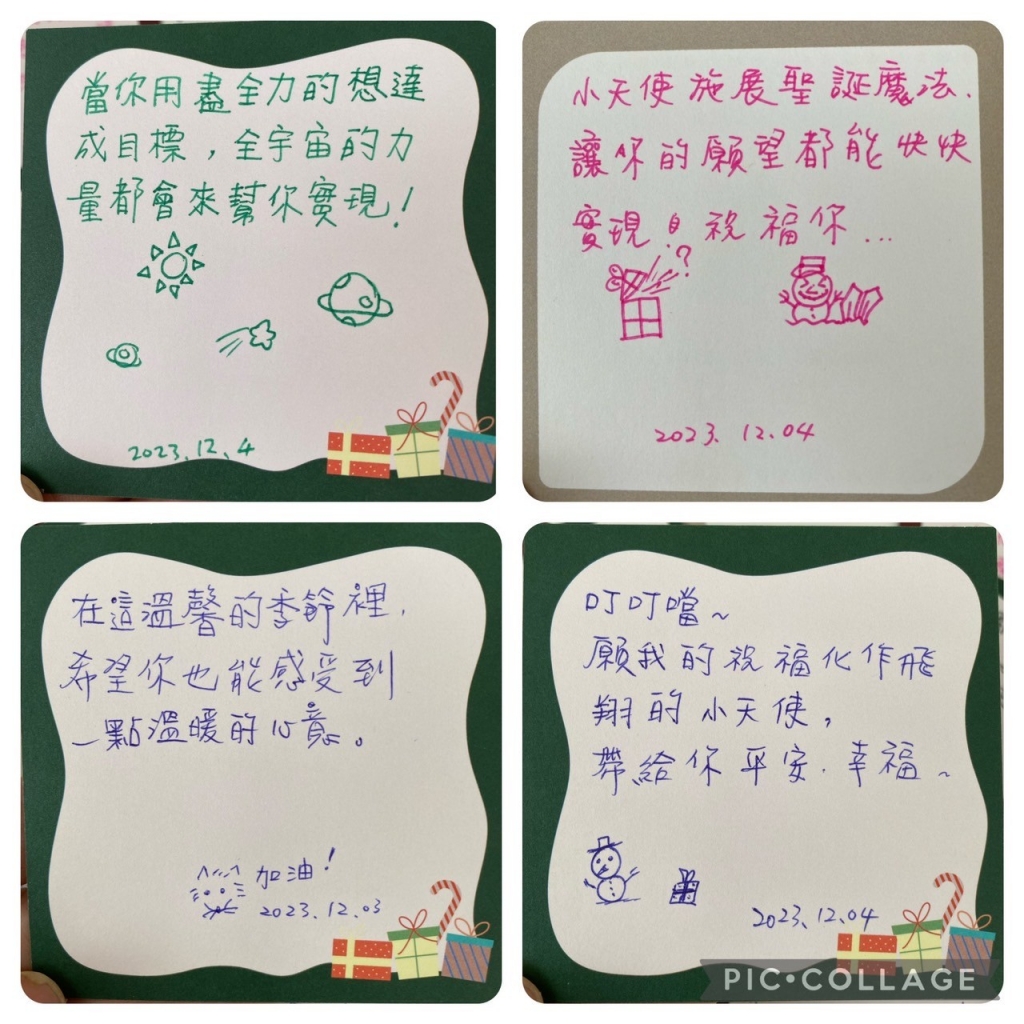 當你用盡全力的想達
成目標，全宇宙的力
量都會來幫你實現！
2023.12.4
小天使施展聖誕魔法.
讓你的願望都能快快
實現！祝福你...
?
2023.12.04
在這溫馨的季節裡,
希望你也能感受到
一點溫暖的心意。
加油！
2023.12.03
叮叮噹~
願我的祝福化作飛
翔的小天使，
帶給你平安.幸福~
2023.12.04
PIC•COLLAGE